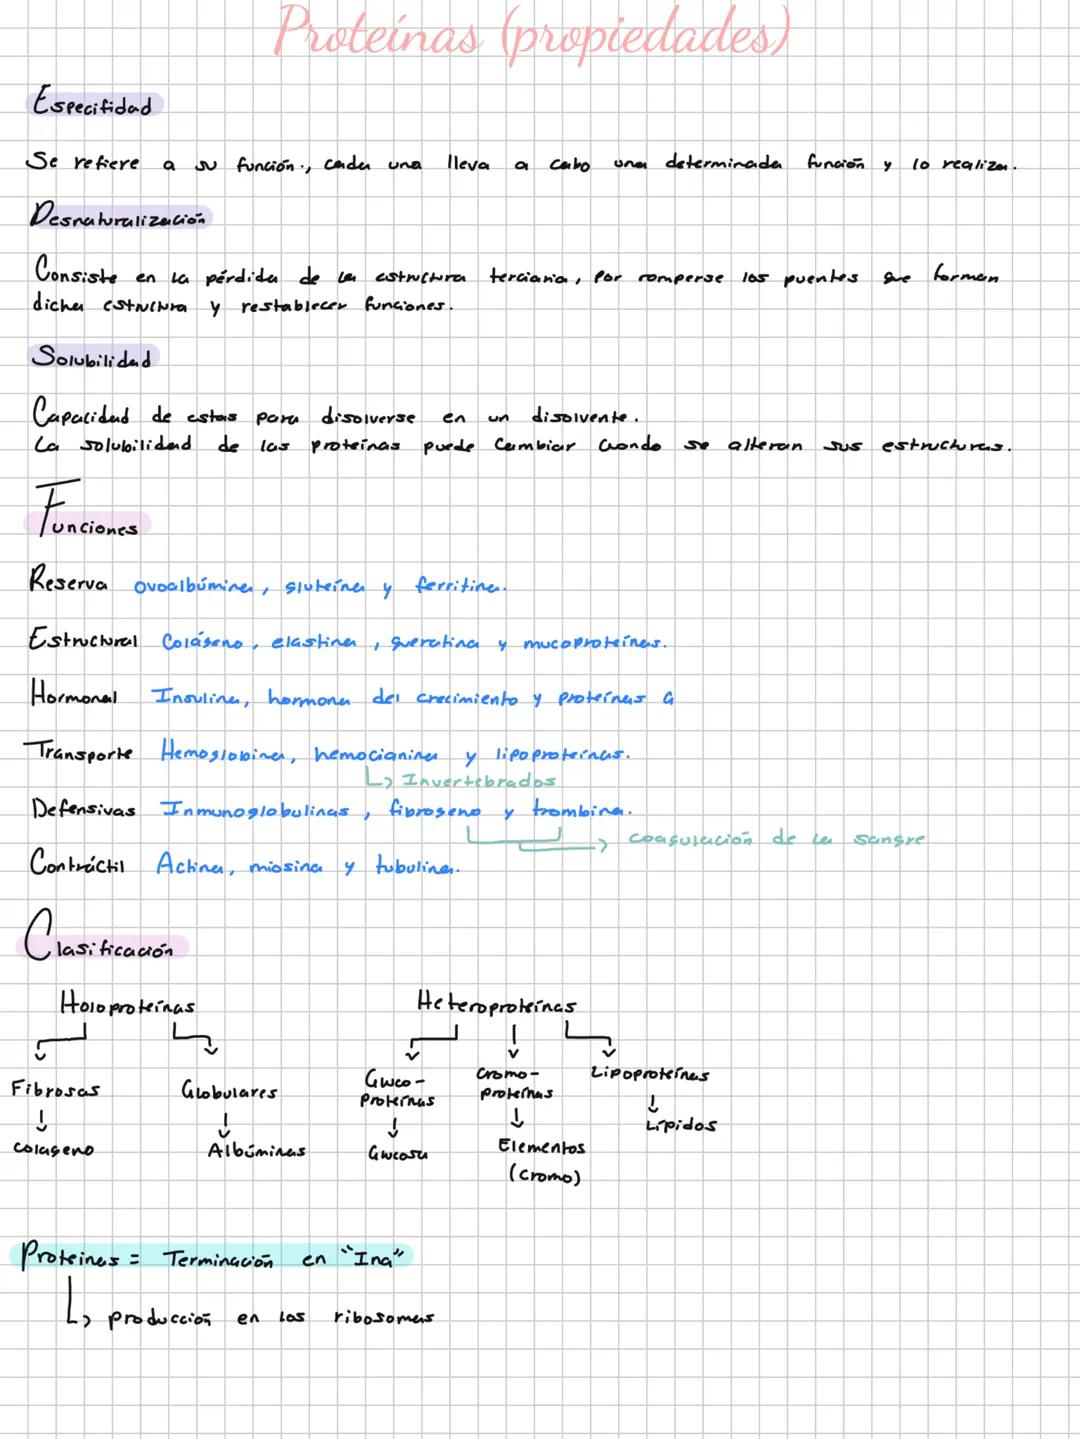 Proteínas (propiedades)
Especifidad
Se refiere a su función., cada una lleva a cabo una determinada función y lo realiza.
Desnaturalización
Consiste en la pérdida de la estructura terciaria, por romperse los puentes que forman
dicha estructura y restablecer funciones.
Solubilidad
Capacidad de estas para disolverse en un disolvente.
La solubilidad de las proteínas puede cambiar cuando se alteran sus estructuras.
Funciones
Reserva ovoalbúmina, gluteína y ferritina.
Estructural Colágeno, elastina, queratina y mucoproteínas.
Hormonal Insulina, hormona del crecimiento y proteínas G
Transporte Hemoglobina, hemocianina y lipoproteínas.
Invertebrados
Defensivas Inmunoglobulinas, fibrogeno y trombina.
coagulación de la sangre
Contráctil Actina, miosina y tubulina.
Clasificación
Holoproteínas Heteroproteínas
Fibrosas Globulares Gluco-proteínas Cromo-proteínas Lipoproteínas
colageno Albúminas Glucosa Elementos (cromo) Lípidos
Proteinas = Terminación en "Ina"
producción en los ribosomas